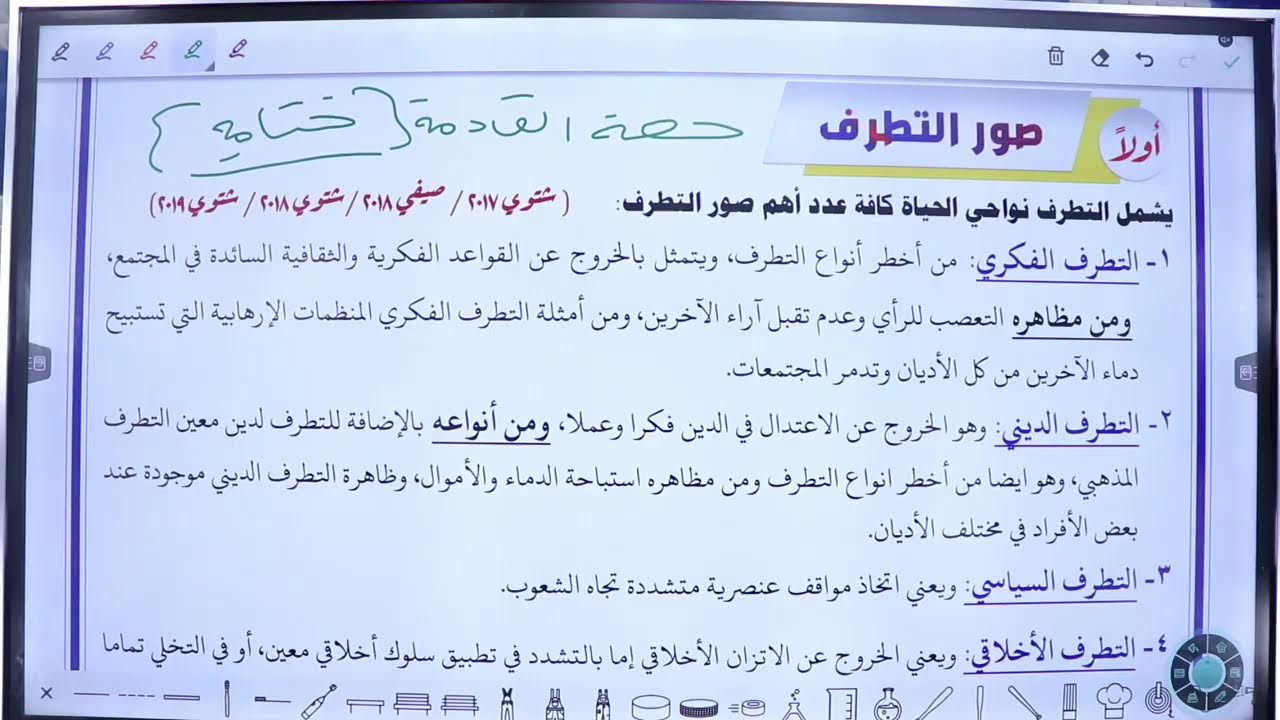 حصة القادمة {ختامية}
أولاً
صور التطرف
يشمل التطرف نواحي الحياة كافة عدد أهم صور التطرف: (شتوي ٢٠١٧ / صيفي ٢٠١٨ / شتوي ٢٠١٨ / شتوي ٢٠١٩)
١- التطرف الفكري: من أخطر أنواع التطرف، ويتمثل بالخروج عن القواعد الفكرية والثقافية السائدة في المجتمع،
ومن مظاهره التعصب للرأي وعدم تقبل آراء الآخرين، ومن أمثلة التطرف الفكري المنظمات الإرهابية التي تستبيح
دماء الآخرين من كل الأديان وتدمر المجتمعات.
٢- التطرف الديني: وهو الخروج عن الاعتدال في الدين فكرا وعملا، ومن أنواعه بالإضافة للتطرف لدين معين التطرف
المذهبي، وهو ايضا من أخطر انواع التطرف ومن مظاهره استباحة الدماء والأموال، وظاهرة التطرف الديني موجودة عند
بعض الأفراد في مختلف الأديان.
٣- التطرف السياسي: ويعني اتخاذ مواقف عنصرية متشددة تجاه الشعوب.
٤- التطرف الأخلاقي: ويعني الخروج عن الاتزان الأخلاقي إما بالتشدد في تطبيق سلوك أخلاقي معين، أو في التخلي تماما